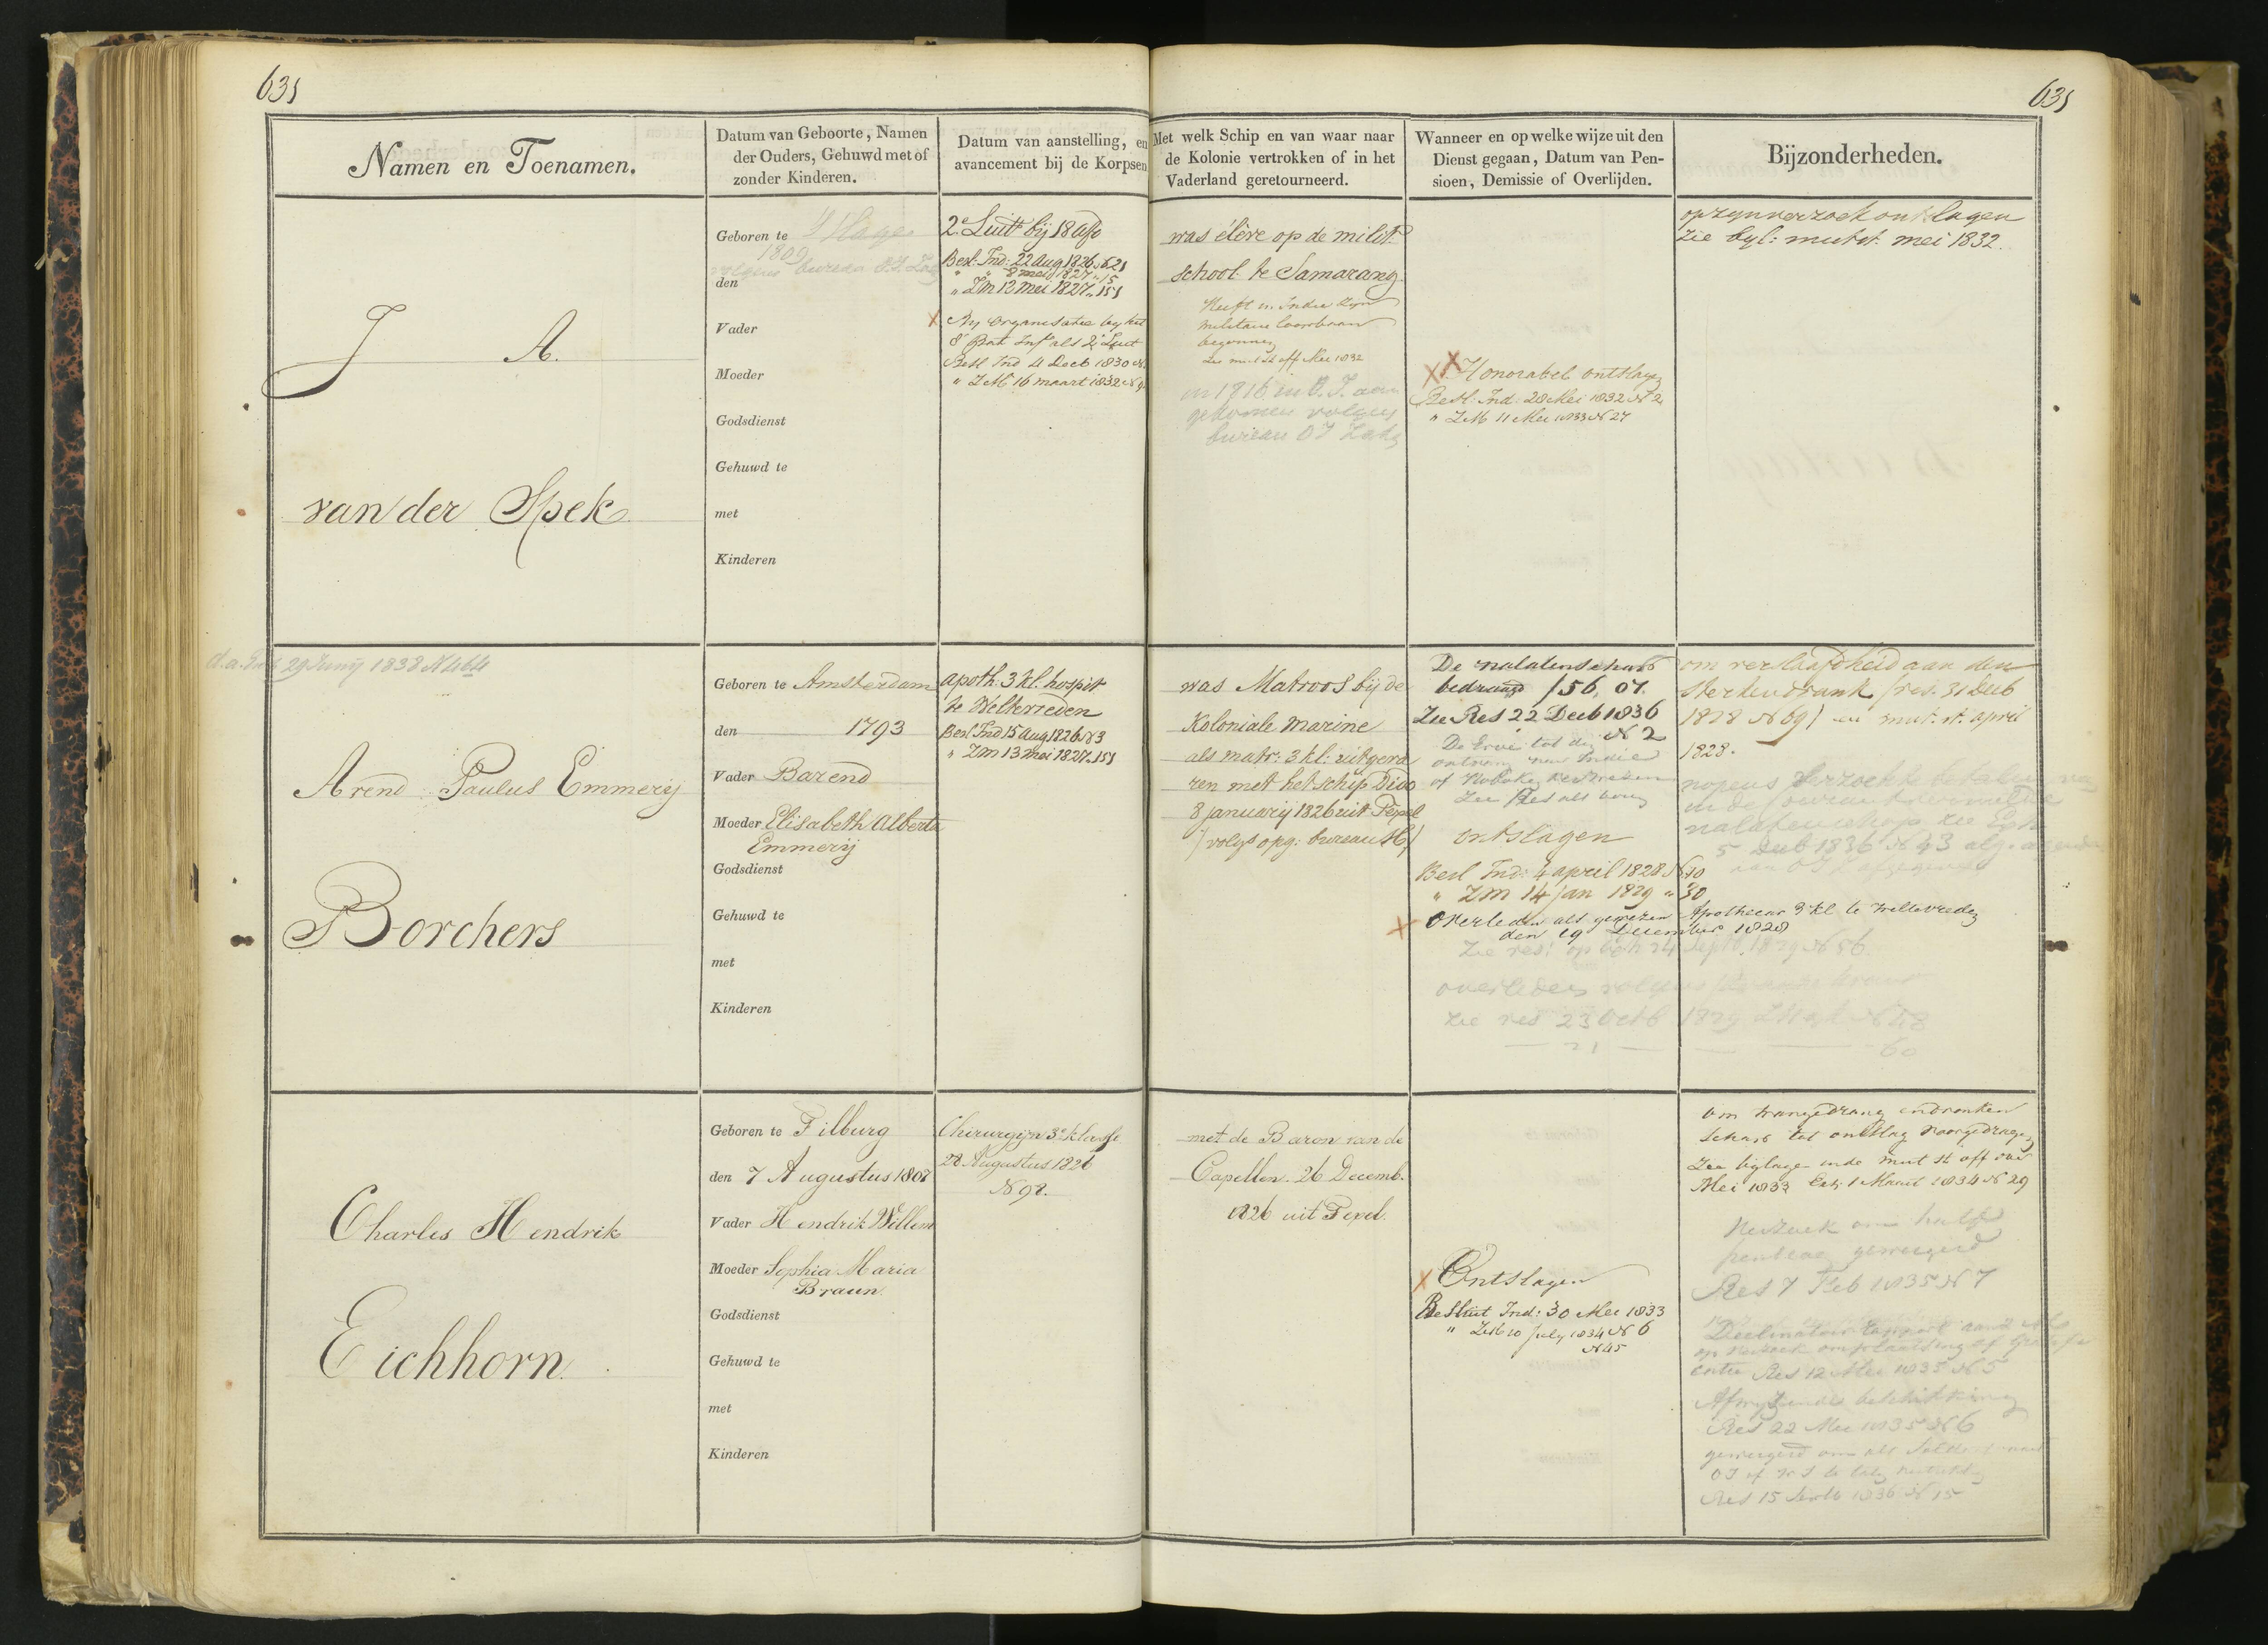 631
631
Namen en Toenamen.
Datum van Geboorte, Namen
der Ouders, Gehuwd met of
zonder Kinderen.
Datum van aanstelling, en
avancement bij de Korpsen
Met welk Schip en van waar naar
de Kolonie vertrokken of in het
Vaderland geretourneerd.
Wanneer en op welke wijze uit den
Dienst gegaan, Datum van Pen-
sioen, Demissie of Overlijden.
Bijzonderheden.
J A.
van der Spek
Geboren te 's Hage
1809
volgens bureau O.I.
den
Vader
Moeder
Godsdienst
Gehuwd te
met
Kinderen
2e Luit bij 18 afd
Besl: Ind: 22 Aug 1826 N 21
" " 8 1827 " 15
" ZM 13 mei 1827 " 151
By organisatie by het
8e Bat Inf als 2e Luit
Besl Ind 4 Decb 1830 N
" ZM 16 maart 1832 N
was élève op de milit
school te Samarang
Heeft in Indie zyn
militaire loopbaan
begonnen
Zie mut st off Mei 1832
in 1816 in O.I. aan
gekomen volgens
bureau O I
X X Honorabel ontslagen
Besl: Ind: 28 Mei 1832 N 2
" ZM 11 Mei 1833 N 27
op zyn verzoek ontslagen
zie byl: mut st: mei 1832.
29 Juny 1838 N
Arend Paulus Emmerij
Borchers
Geboren te Amsterdam
den 1793
Vader Barend
Moeder Elisabeth Alberta
Emmerij
Godsdienst
Gehuwd te
met
Kinderen
apoth: 3 kl: hospit
te Weltevreden
Besl Ind 15 Aug 1826 N 3
" ZM 13 mei 1827 " 151
was Matroos bij de
Koloniale Marine
als matr: 3 kl: uitgeva
ren met het schip Dido
8 januarij 1826 uit Texel
/volgs opg: bureau
De nalatenschap
bedraagd f 56, 07.
Zie Res 22 Decb 1836
N 2
ontslagen
Besl Ind: 4 april 1828 N 30
" ZM 14 jan 1829 " 30
X Overleden als gewezen Apothecar 3 kl te Weltevreden
den 19 December 1828
Zie res: op 24 Sept 1829 N 56
overleden volgens
zie res 23 Octb 1829
om verslaafdheid aan den
sterkendrank /res. 31 Decb
1828 N 69/ en mut: st: april
1828.
nopens verzoek
nalatenschap zie
5 Decb 1836 N 43
Charles Hendrik
Eichhorn.
Geboren te Tilburg
den 7 Augustus 1807
Vader Hendrik Willem
Moeder Sophia Maria
Braun.
Godsdienst
Gehuwd te
met
Kinderen
Chirurgijn 3e klasse
28 Augustus 1826
N 98.
met de Baron van de
Capellen. 26 Decemb.
1826 uit Texel.
X Ontslagen
Besluit Ind: 30 Mei 1833
" ZM 10 july 1834 N 6
N 45
om wangedrag en dronken
schap tot ontslag voorgedragen
Zie bijlage in de mut st off over
Mei 1833 Exh 1 Maart 1834 N 29
Verzoek om
pensioen geweigerd
Res 7 Feb 1835 N 7
Res 12 Mei 1835 N 5
Afwijzende beschikking
Res 22 Mei 1835 N 6
geweigerd om als
Res 15 1836 N 15